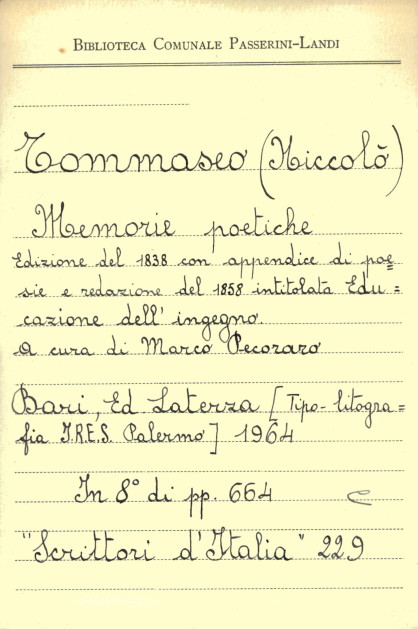 BIBLIOTECA COMUNALE PASSERINI-LANDI
Tommaseo (Niccolò)
Memorie poetiche
Edizione del 1838 con appendice di poe=
sie e redazione del 1858 intitolata Edu=
cazione dell'ingegno.
A cura di Marco Pecoraro
Bari, Ed Laterza [Tipo-litogra=
fia I.R.E.S. Palermo] 1964
In 8° di pp. 664
"Scrittori d'Italia" 229